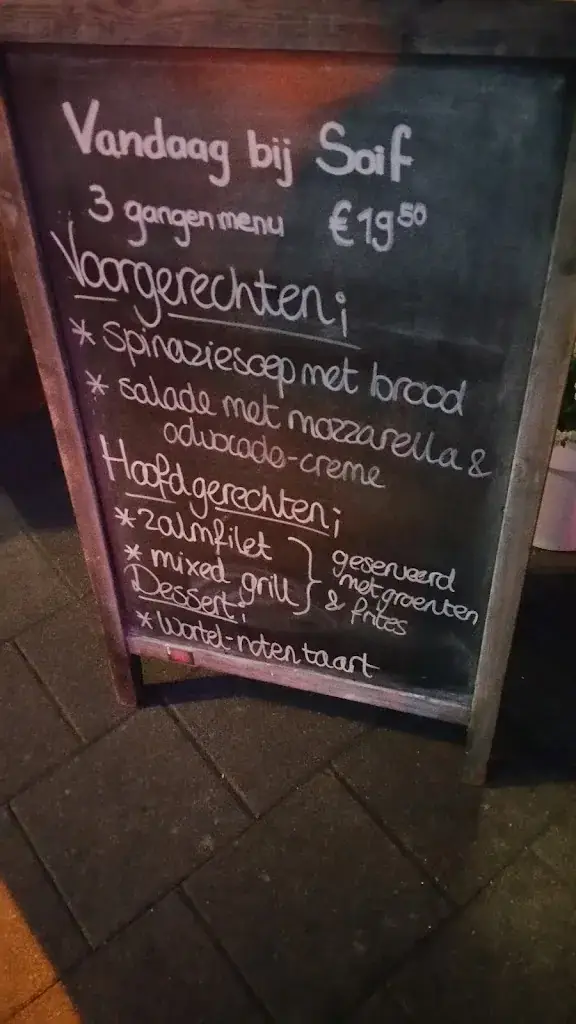 Vandaag bij Soif
3 gangenmenu €19⁵⁰
Voorgerechten;
* spinaziesoep met brood
* salade met mozzarella &
advocado-creme
Hoofdgerechten;
* zalmfilet
* mixed grill
} geserveerd
met groenten
& frites
Dessert;
* wortel-notentaart